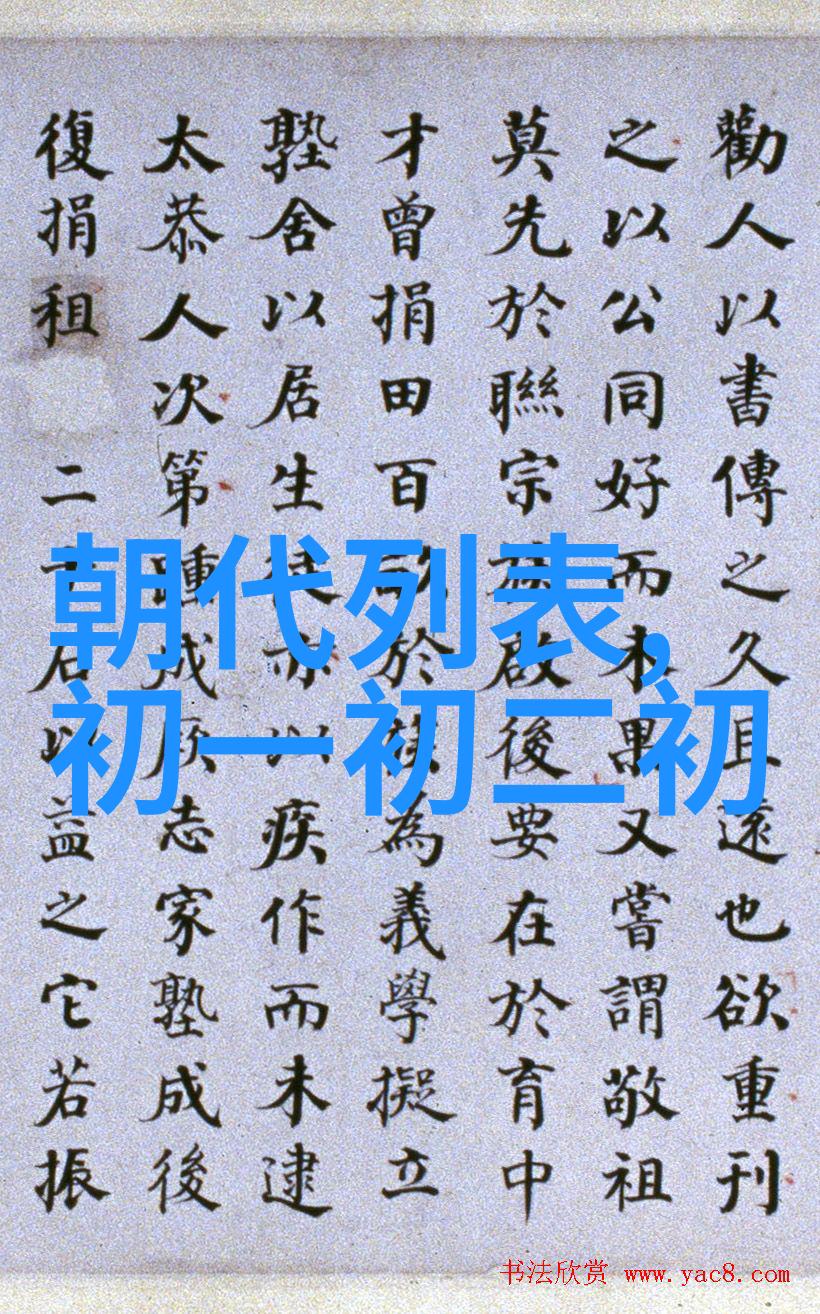 勸人以書傳之久且遠也欲重刊
之以公同好而未果又嘗謂敬祖
莫先於聯宗族啟後要在於育中
才曾捐田百於族為義學擬立
塾舍以居生徒亦以疾作而未逮
太恭人次第踵成厥志家塾成後
復捐租二千石以益之它若振
朝代列表,
初一初二初
书法欣赏 www.yac8.com